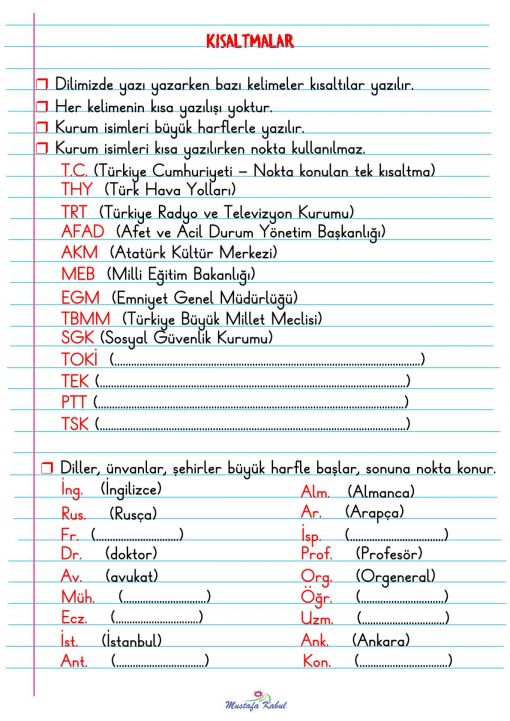 KISALTMALAR
❒ Dilimizde yazı yazarken bazı kelimeler kısaltılar yazılır.
❒ Her kelimenin kısa yazılışı yoktur.
❒ Kurum isimleri büyük harflerle yazılır.
❒ Kurum isimleri kısa yazılırken nokta kullanılmaz.
T.C. (Türkiye Cumhuriyeti – Nokta konulan tek kısaltma)
THY (Türk Hava Yolları)
TRT (Türkiye Radyo ve Televizyon Kurumu)
AFAD (Afet ve Acil Durum Yönetim Başkanlığı)
AKM (Atatürk Kültür Merkezi)
MEB (Milli Eğitim Bakanlığı)
EGM (Emniyet Genel Müdürlüğü)
TBMM (Türkiye Büyük Millet Meclisi)
SGK (Sosyal Güvenlik Kurumu)
TOKİ (..........................................................................................)
TEK (..........................................................................................)
PTT (..........................................................................................)
TSK (..........................................................................................)
❒ Diller, ünvanlar, şehirler büyük harfle başlar, sonuna nokta konur.
İng. (İngilizce) Alm. (Almanca)
Rus. (Rusça) Ar. (Arapça)
Fr. (.............................) İsp. (.............................)
Dr. (doktor) Prof. (Profesör)
Av. (avukat) Org. (Orgeneral)
Müh. (.............................) Öğr. (.............................)
Ecz. (.............................) Uzm. (.............................)
İst. (İstanbul) Ank. (Ankara)
Ant. (.............................) Kon. (.............................)
Mustafa Kabul